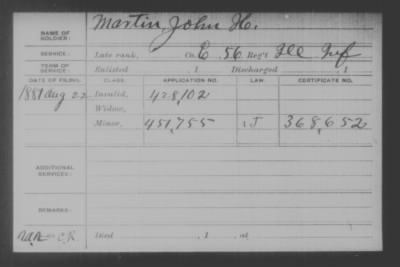 NAME OF SOLDIER: Martin, John H.
SERVICE: Late rank, Co. E, 56 Reg't Ill Inf
TERM OF SERVICE: Enlisted , 1 Discharged , 1
DATE OF FILING. CLASS. APPLICATION NO. LAW. CERTIFICATE NO.
1881 Aug 22 Invalid, 428,102
Widow,
Minor, 451,755 J 368,652
ADDITIONAL SERVICES:
REMARKS:
C.R. Died , 1 , at